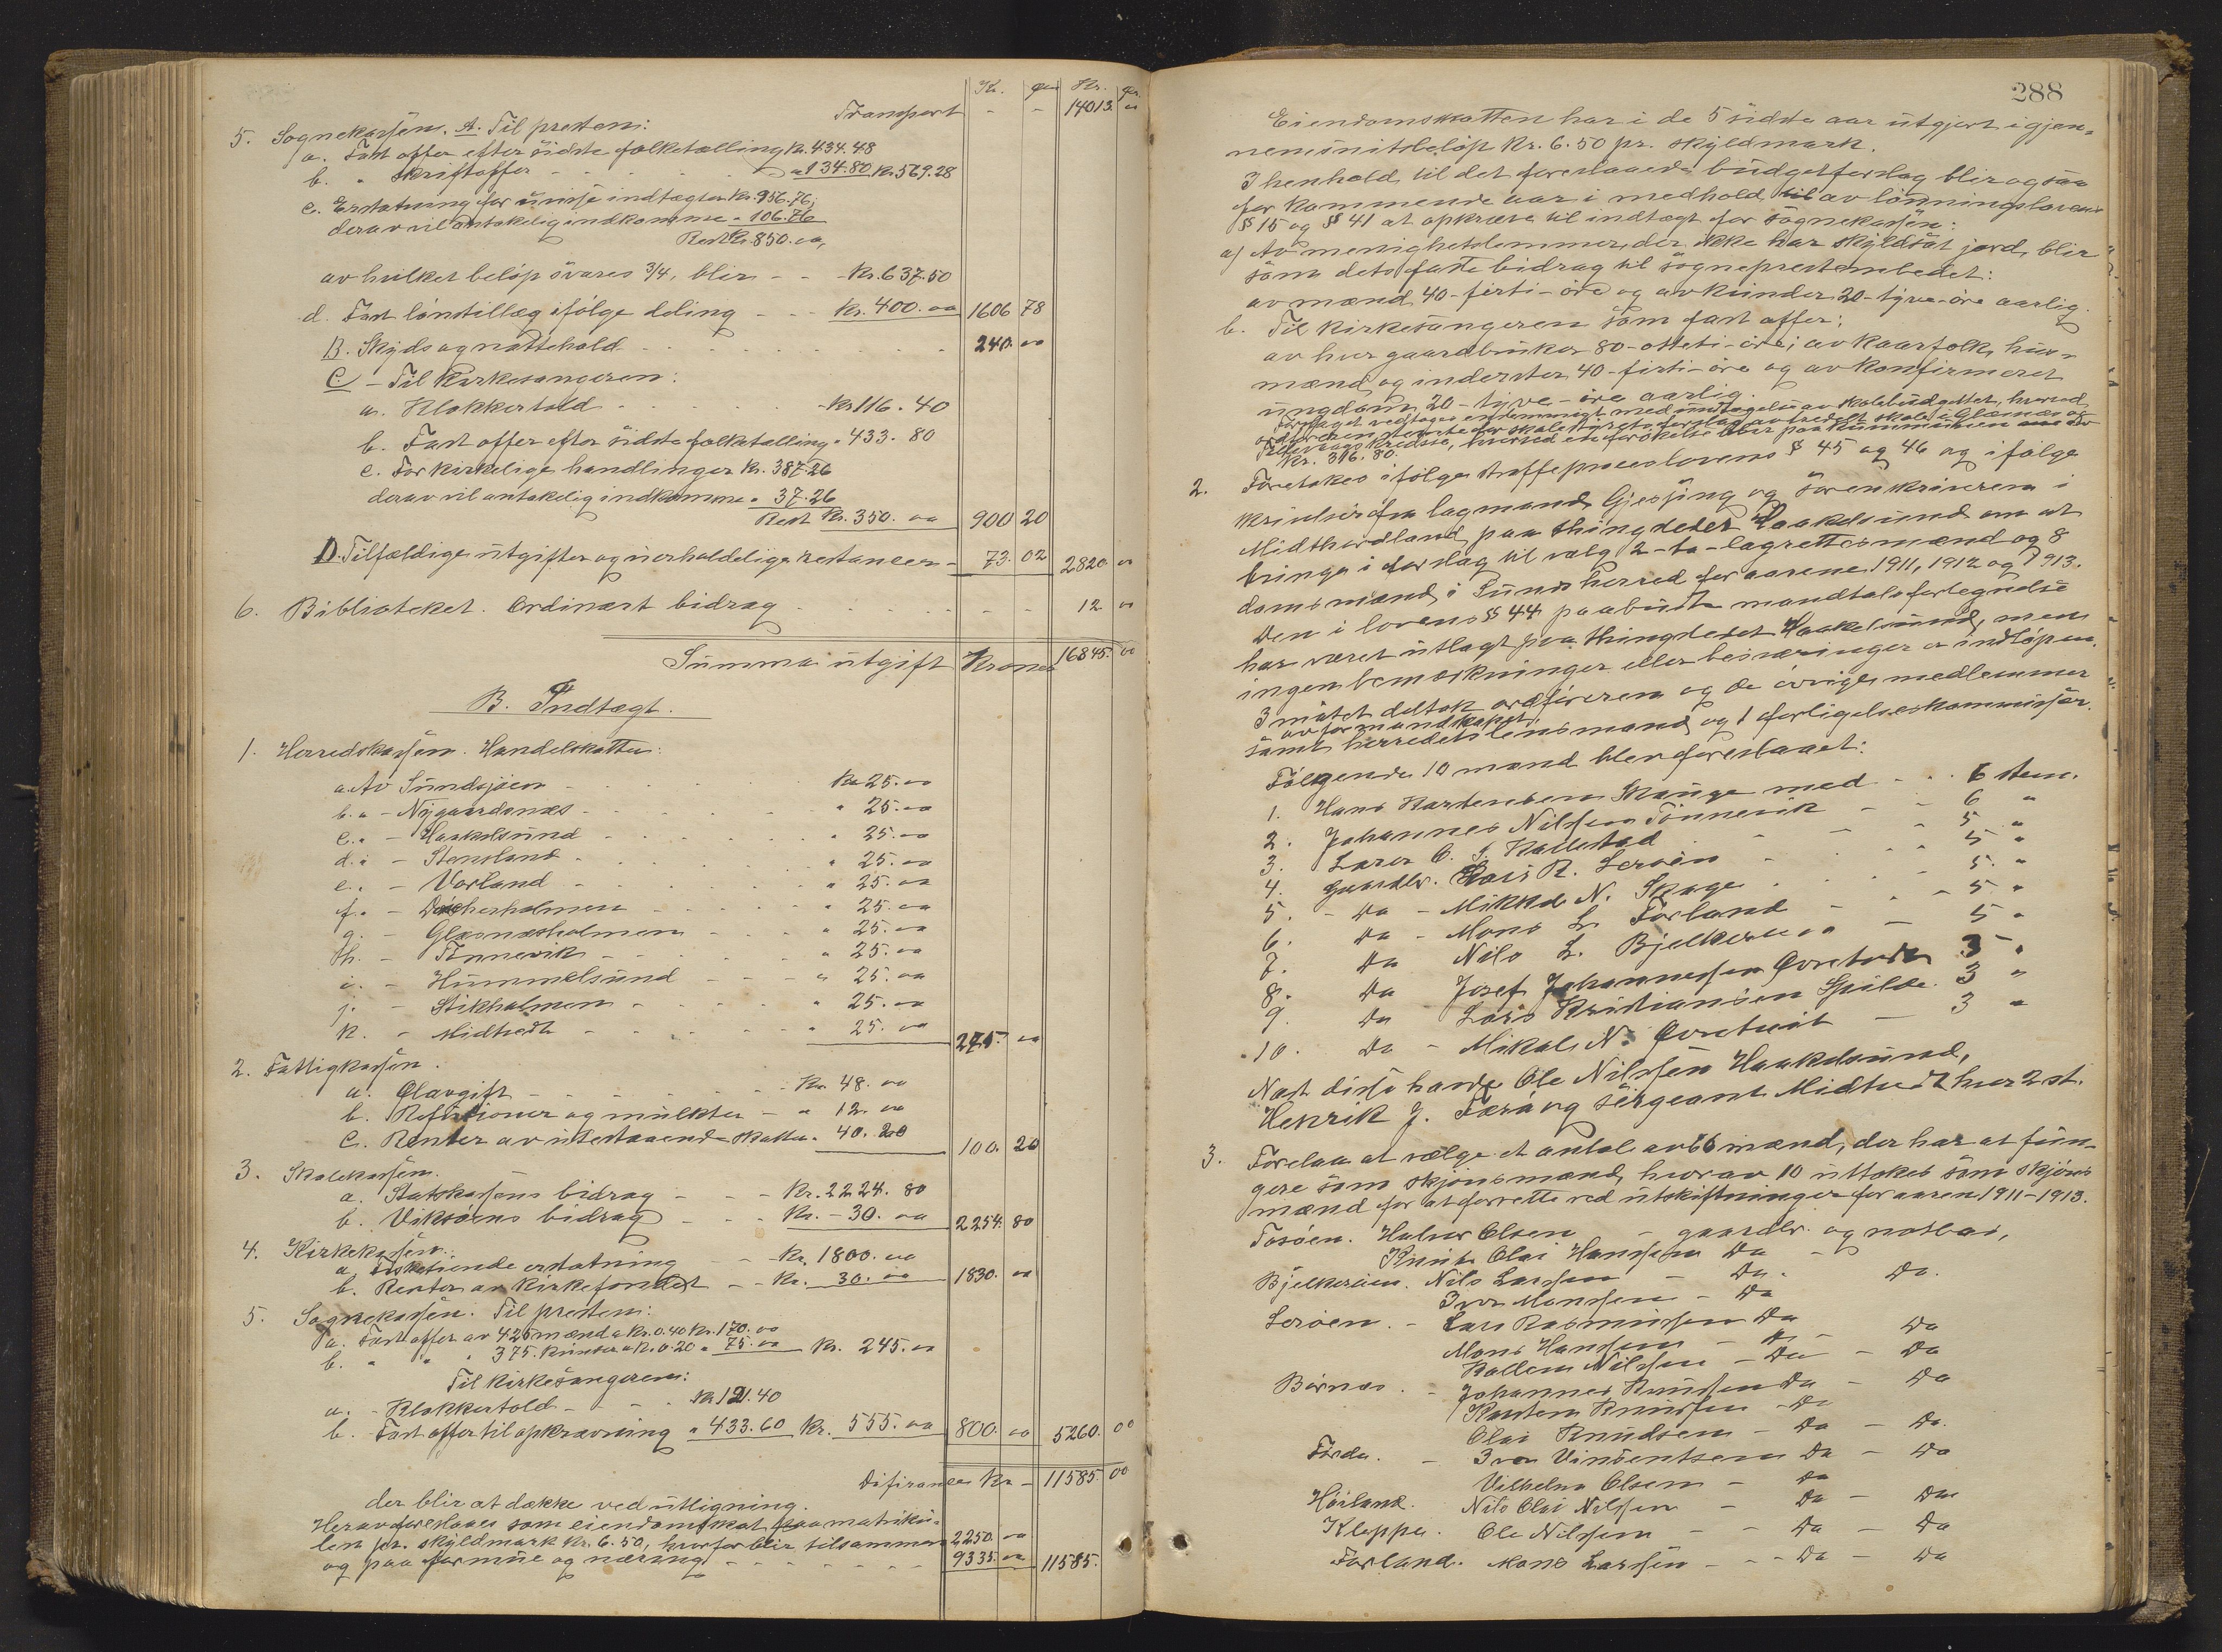 Kr. øre Kr. ør.
Transport - - 14013. oo
5. Sognekassen. A. Til presten:
a. Fast offer efter sidste folketælling Kr. 434.48
b. " Skriftoffer - - - " 134.80 Kr. 569.28
c. Erstatning for uvisse indtægter Kr. 956.76,
derav vil antakelig indkomme " 106.76
Rest Kr. 850.oo,
av hvilket beløp svares 3/4, blir - - Kr. 637.50
d. Fast lønstillæg ifølge deling - - Kr. 400.oo 1606 78
B. Skyds og nattehold 240. oo
C. - Til Kirkesangeren:
a. Klokkertold - Kr. 116.40
b. Fast offer efter sidste folketælling " 433.80
c. For kirkelige handlinger Kr. 387.26
derav vil antakelig indkomme " 37.26
Rest Kr. 350.oo 900 20
D. Tilfældige utgifter og uerholdelige restancer - 73. 02 2820. oo
6. Biblioteket. Ordinært bidrag - - 12 oo
Summa utgift Kroner 16845. oo
B. Indtægt.
1. Herredskassen. Handelskatten:
a. Av Sundsjøen Kr. 25.oo
b. " - Nygaardsnæs " 25.oo
c. " - Haakelsund " 25.oo
d. " - Stensland " 25.oo
e. " - Vorland " 25.oo
f. " - holmen " 25.oo
g. - Glesnæsholmen " 25.oo
h. - Tønnevik " 25.oo
i. - Hummelsund " 25.oo
j. - Stikholmen " 25.oo
k. - Midtvedt " 25.oo 275. oo
2. Fattigkassen.
a. Ølavgift - - - Kr. 48.oo
b. Refusioner og mulkter - " 12.oo
c. Renter av utestaaende skatter " 40.20 100. 20
3. Skolekassen.
a. Statskassens bidrag - - Kr. 2224.80
b. Viksøens bidrag - - Kr. - 30.oo 2254. 80
4. Kirkekassen.
a. Fisketiende erstatning - Kr. 1800.oo
b. Renter av Kirkefondet - - Kr. 30.oo 1830. oo
5. Sognekassen. Til presten:
a. Fast offer av 425 mænd a Kr. 0.40 Kr. 170.oo
b. " " " 375. kvinder a Kr. 0.20 " 75.oo Kr. 245.oo
Til kirkesangeren:
a. - Klokkertold - - - Kr. 121.40
b. - Fast offer til opkrævning " 433.60 Kr. 555.oo 800. oo 5260. oo
Difirance Kr. - 11585. oo
der blir at dække ved utligning.
Herav foreslaaes som eiendomsskat paa matriku-
len pr. skyldmark Kr. 6.50, hvorfor blir tilsammen 2250. oo
og paa formue og næring - - - - 9335. oo 11585.
288
Eiendomsskatten har i de 5 sidste aar utgjort i gjen-
nemsnitsbeløp Kr. 6.50 pr. skyldmark.
I henhold til det foreslaaede budgetforslag blir ogsaa
for kommende aar i medhold til av lønningslovens
§ 15 og § 41 at opkræve til indtægt for sognekassen:
a) Av menighetslemmer, der ikke har skyldsat jord, blir
som dets faste bidrag til sogneprestembedet:
av mænd 40 - firti - øre og av kvinder 20 - tyve - øre aarlig.
b. Til Kirkesangeren som fast offer:
av hver gaardbruker 80 - otteti - øre; av kaarfolk, hus-
mænd og inderster 40 - firti - øre og av konfirmeret
ungdom 20 - tyve - øre aarlig.
Forslaget vedtages enstemmigt med undtagelse av skolebudgettet, hvorved
ordføreren stemte for skolestyrets forslag av skole i Glæsnæs og
kredse, hvorved en forøkelse blir paa kommunen av
Kr. 316.80.
2. Foretokes ifølge straffeproceslovens § 45 og 46 og ifølge
skrivelser fra lagmand Gjessing og sorenskriveren i
Midthordland paa thingstedet Haakelsund om at
bringe i forslag til valg 2 - to - lagrettesmænd og 8
domsmænd i Sunds herred for aarene 1911, 1912 og 1913.
Den i lovens §§ 44 paabudte mandtalsfortegnelse
har været utlagt paa thingstedet Haakelsund, men
ingen bemærkninger eller besværinger er indløpen.
I møtet deltok ordføreren og de øvrige medlemmer
av formandskapet,
samt herredets lensmand og 1 forligelseskommissær.
Følgende 10 mand blev foreslaaet:
1. Hans Karstensen Skauge med - - 6 stem.
2. Johannes Nilssen Tønnevik - - 6 "
3. Lærer O. J. Kallestad - - 5 "
4. Gaardbr. Lars R. Lerøen - - 5 "
5. - Do - Mikkel N. Skage - - 5. "
6. Do - Mons L. Førland - - 5. "
7. Do Nils L. Bjelkerøen - 5 "
8. Do Josef Johannessen Gvretvedt 3 "
9. Do Lars Kristiansen Spilde 3 "
10. Do - Mikal N. Gvretveit - 3 "
Næst disse havde Ole Nilssen Haakelsund,
Henrik J. Færø og sergeant Midtvedt hver 2 st.
3. Forelaa at vælge et antal av 66 mænd, der har at fun-
gere som skjønsmænd, hvorav 10 uttokes som skjøns
mænd for at forrette ved utskiftninger for aaren 1911-1913.
Tosøen. Halvor Olsen - gaardbr. og notbas,
Knut Olai Hanssen Do -
Bjelkerøen. Nils Larssen - Do. Do.
Iver Monssen - Do
Lerøen. - Lars Rasmussen Do Do
Mons Hanssen - Do -
Kollein Nilssen - Do - Do
Børnæs. - Johannes Knudsen Do - Do
Karsten Knudsen - Do
Olai Knudsen - Do - Do.
Førde. - Iver Vinsentsen Do - Do
Vilhelm Olsen - Do
Hørland. Nils Olai Nilssen - Do - Do
Kleppe. Ole Nilssen - - Do - Do
Forland. Mons Larssen - - - Do - Do